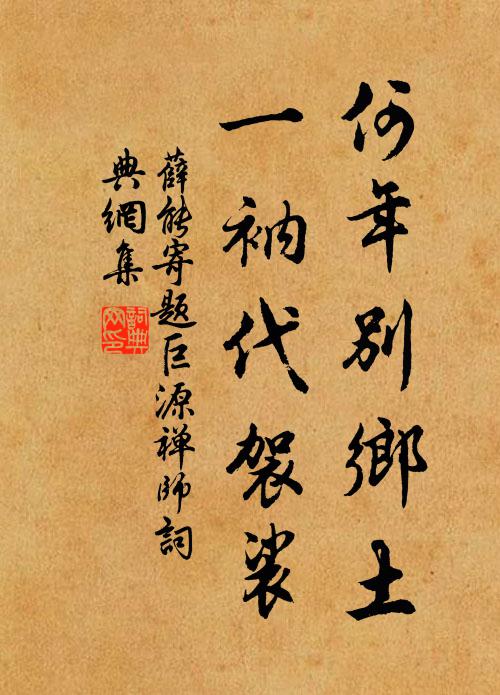 何年別鄉土
一衲代袈裟
薛能寄題巨源禅師詞
典網集
詞典網印